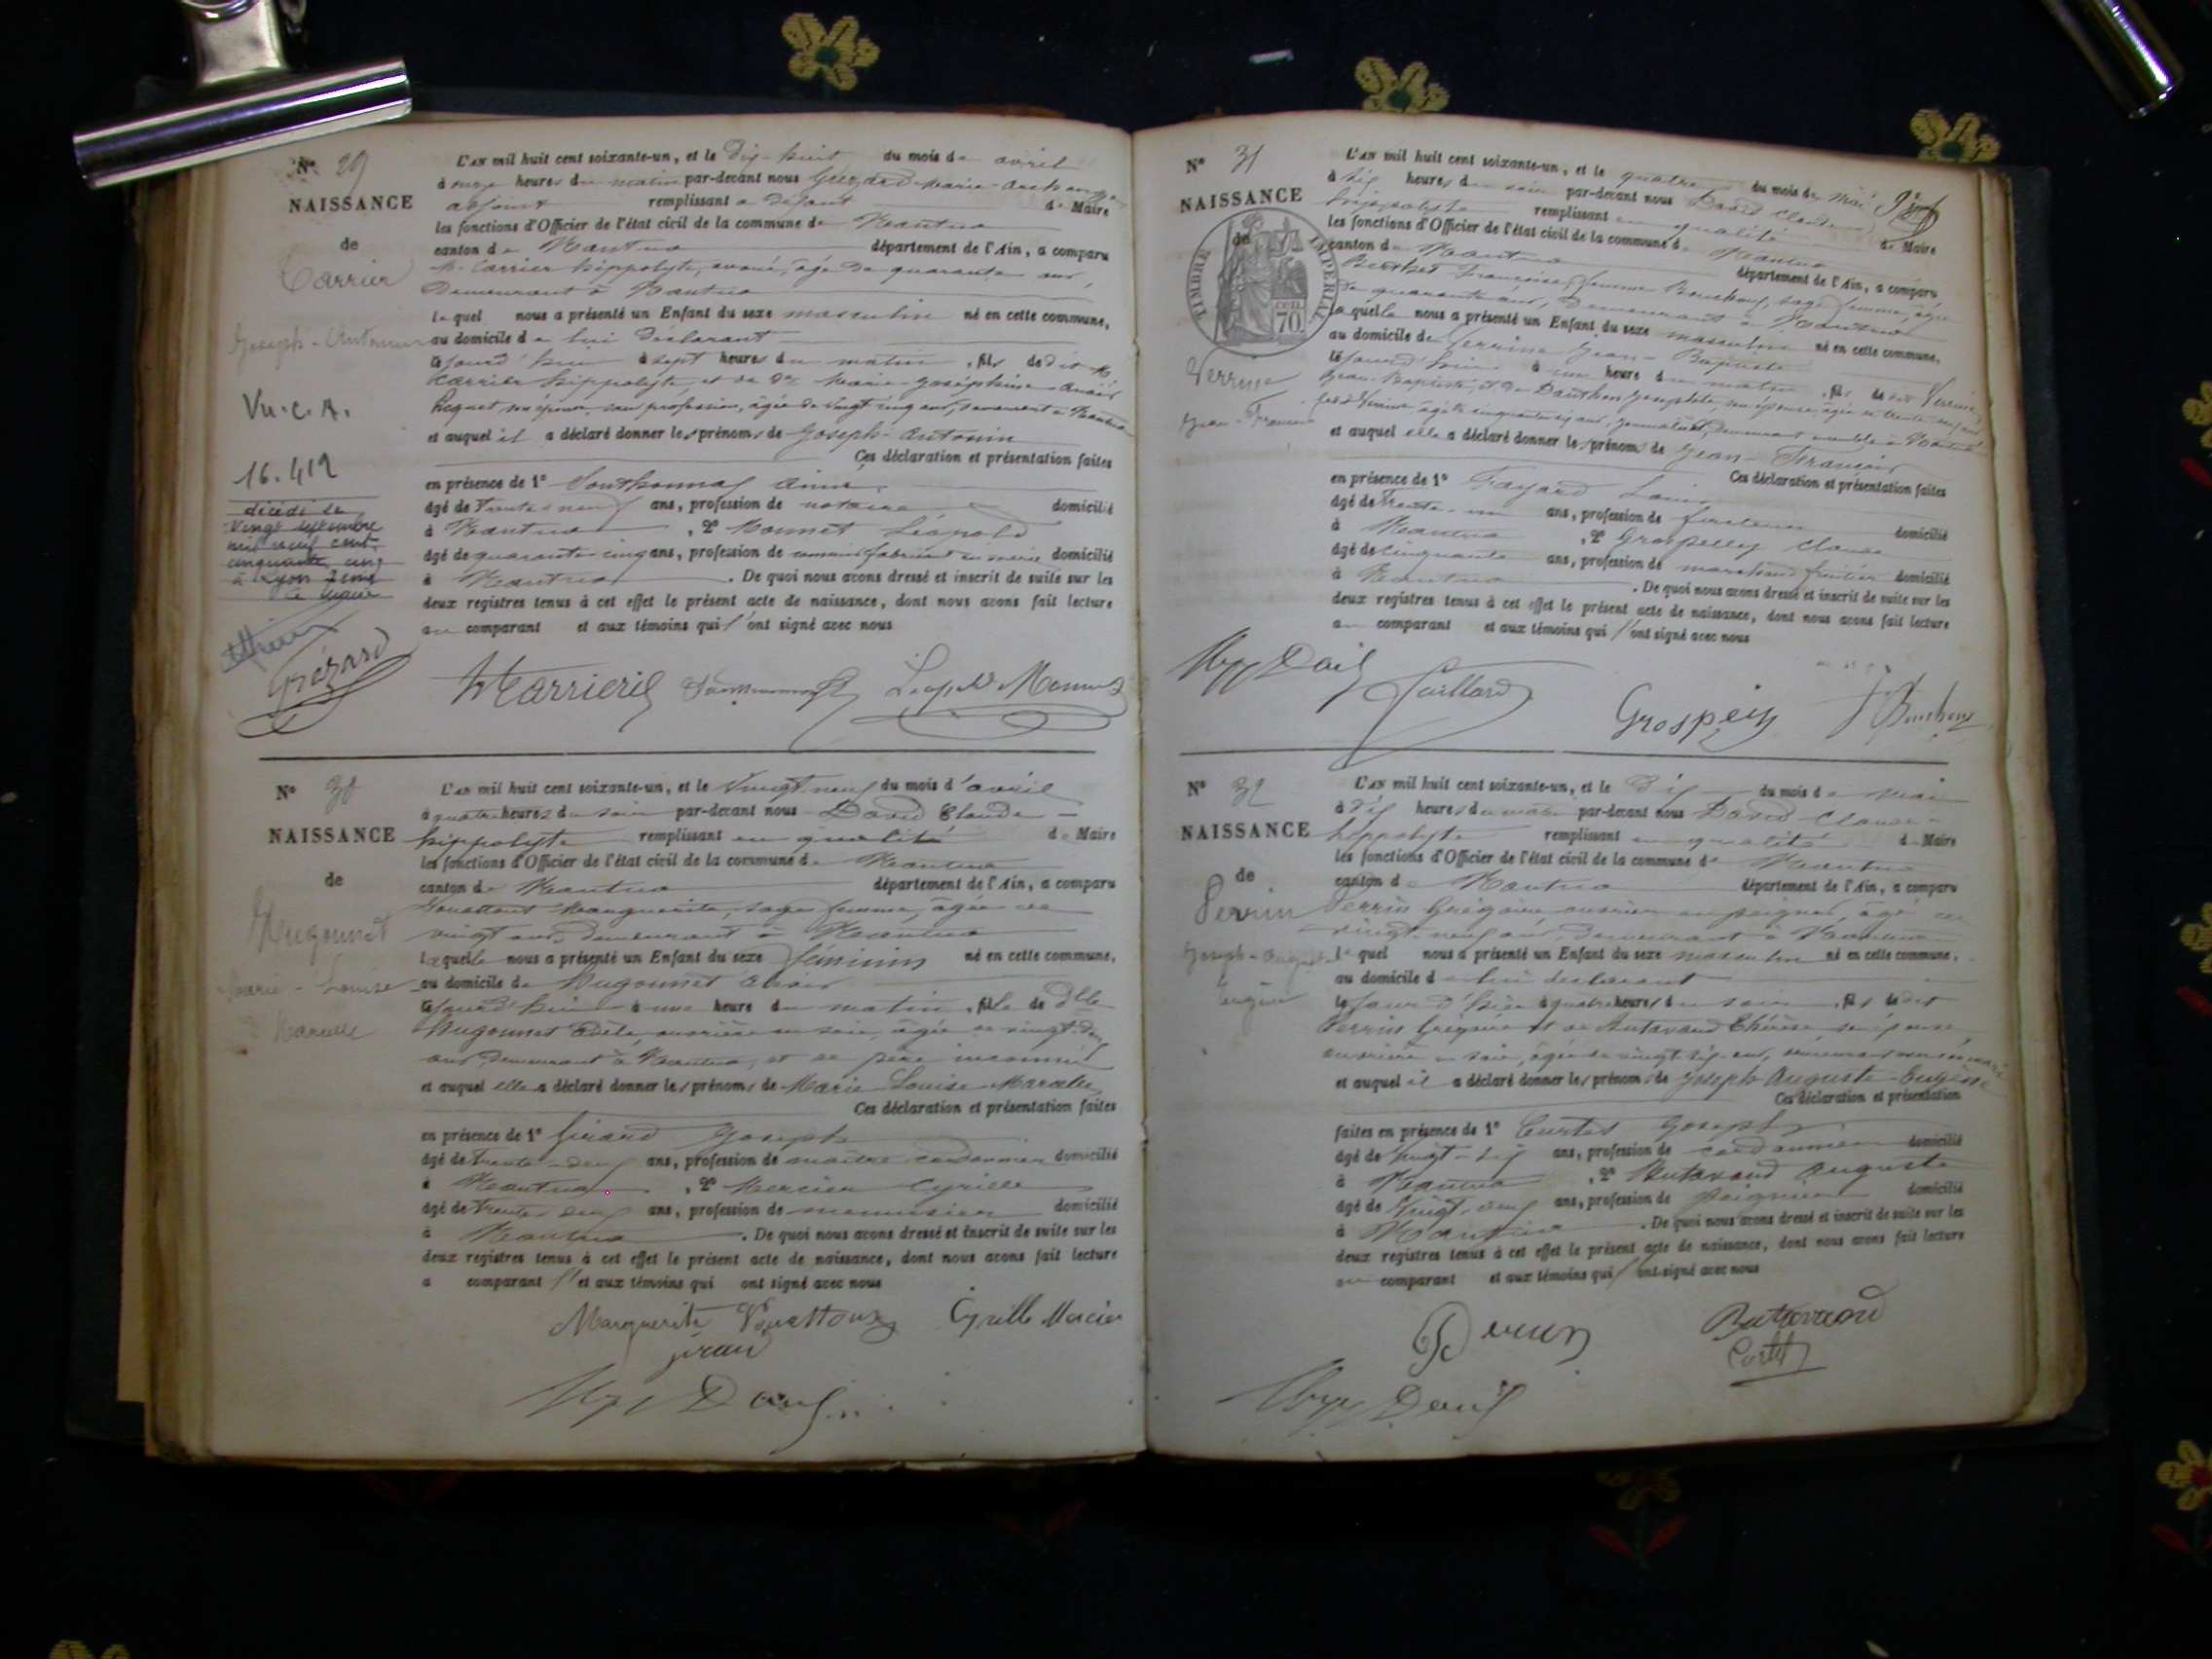 N° 29
NAISSANCE
de
Carrier
Joseph-Antonin
Vu.c.A.
16.412
décédé le
vingt septembre
mil neuf cent
cinquante cinq
à Lyon 2ème
Le Maire
L'AN mil huit cent soixante-un, et le dix-huit du mois de avril
à onze heures du matin par-devant nous Grézard Marie-Archange
adjoint remplissant à défaut de Maire
les fonctions d'Officier de l'état civil de la commune de Nantua
canton de Nantua département de l'Ain, a comparu
M. Carrier hippolyte, avoué, âgé de quarante ans,
Demeurant à Nantua
lequel nous a présenté un Enfant du sexe masculin né en cette commune,
au domicile de lui déclarant
cejourd'hui à sept heures du matin, fils de dit M.
Carrier hippolyte, et de De Marie-Joséphine-Anaïs
son épouse, sans profession, âgée de vingt cinq ans, demeurant à Nantua
et auquel il a déclaré donner les prénoms de Joseph-Antonin
Ces déclaration et présentation faites
en présence de 1° Sonthonnax
âgé de trente neuf ans, profession de notaire domicilié
à Nantua, 2° Monnet Léopold
âgé de quarante-cinq ans, profession de domicilié
à Nantua. De quoi nous avons dressé et inscrit de suite sur les
deux registres tenus à cet effet le présent acte de naissance, dont nous avons fait lecture
au comparant et aux témoins qui l'ont signé avec nous
Grézard
H Carrier Léopold Monnet
N° 30
NAISSANCE
de
Hugonnet
Marie-Louise
Marcelle
L'AN mil huit cent soixante-un, et le vingt neuf du mois d'avril
à quatre heures du soir par-devant nous David Claude
hippolyte remplissant en qualité de Maire
les fonctions d'Officier de l'état civil de la commune de Nantua
canton de Nantua département de l'Ain, a comparu
Marguerite, sage femme, âgée de
vingt ans, demeurant à Nantua
laquelle nous a présenté un Enfant du sexe féminin né en cette commune,
au domicile de Hugonnet
cejourd'hui à une heure du matin, fille de Dlle
Hugonnet Adèle, ouvrière en soie, âgée de vingt-deux
ans, demeurant à Nantua, et de père inconnu
et auquel elle a déclaré donner les prénoms de Marie-Louise-Marcelle
Ces déclaration et présentation faites
en présence de 1° Girard Joseph
âgé de trente-deux ans, profession de maître cordonnier domicilié
à Nantua, 2° Mercier Cyrille
âgé de trente deux ans, profession de menuisier domicilié
à Nantua. De quoi nous avons dressé et inscrit de suite sur les
deux registres tenus à cet effet le présent acte de naissance, dont nous avons fait lecture
a comparant et aux témoins qui ont signé avec nous
Marguerite Cyrille Mercier
Hyp David
N° 31
NAISSANCE
de
TIMBRE IMPERIAL
70
Verrine
Jean-François
L'AN mil huit cent soixante-un, et le quatre du mois de mai
à six heures du soir par-devant nous David Claude
hippolyte remplissant en qualité de Maire
les fonctions d'Officier de l'état civil de la commune de Nantua
canton de Nantua département de l'Ain, a comparu
Françoise, femme Bouchoux, sage femme, âgée
de quarante ans, demeurant à Nantua
laquelle nous a présenté un Enfant du sexe masculin né en cette commune,
au domicile de Verrine Jean-Baptiste
cejourd'hui à une heure du matin, fils de dit Verrine
Jean-Baptiste, et de son épouse, âgée de trente
et auquel elle a déclaré donner les prénoms de Jean-François
Ces déclaration et présentation faites
en présence de 1° Louis
âgé de trente-un ans, profession de domicilié
à Nantua, 2° Grospelley Claude
âgé de cinquante ans, profession de marchand fruitier domicilié
à Nantua. De quoi nous avons dressé et inscrit de suite sur les
deux registres tenus à cet effet le présent acte de naissance, dont nous avons fait lecture
au comparant et aux témoins qui l'ont signé avec nous
Hyp David
N° 32
NAISSANCE
de
Perrin
Joseph-Auguste
Eugène
L'AN mil huit cent soixante-un, et le dix du mois de mai
à dix heures du matin par-devant nous David Claude
hippolyte remplissant en qualité de Maire
les fonctions d'Officier de l'état civil de la commune de Nantua
canton de Nantua département de l'Ain, a comparu
Perrin Grégoire, ouvrier en peignes, âgé de
vingt-neuf ans, demeurant à Nantua
lequel nous a présenté un Enfant du sexe masculin né en cette commune,
au domicile de lui déclarant
le jour d'hier à quatre heures du soir, fils de dit
Perrin Grégoire et de Butavand Thérèse, son épouse,
ouvrière en soie, âgée de vingt-six ans, demeurant avec son mari
et auquel il a déclaré donner les prénoms de Joseph-Auguste-Eugène
Ces déclaration et présentation
faites en présence de 1° Curtet Joseph
âgé de vingt-six ans, profession de cordonnier domicilié
à Nantua, 2° Butavand Auguste
âgé de vingt-deux ans, profession de peigneur domicilié
à Nantua. De quoi nous avons dressé et inscrit de suite sur les
deux registres tenus à cet effet le présent acte de naissance, dont nous avons fait lecture
au comparant et aux témoins qui l'ont signé avec nous
Perrin Butavand
Curtet
Hyp David